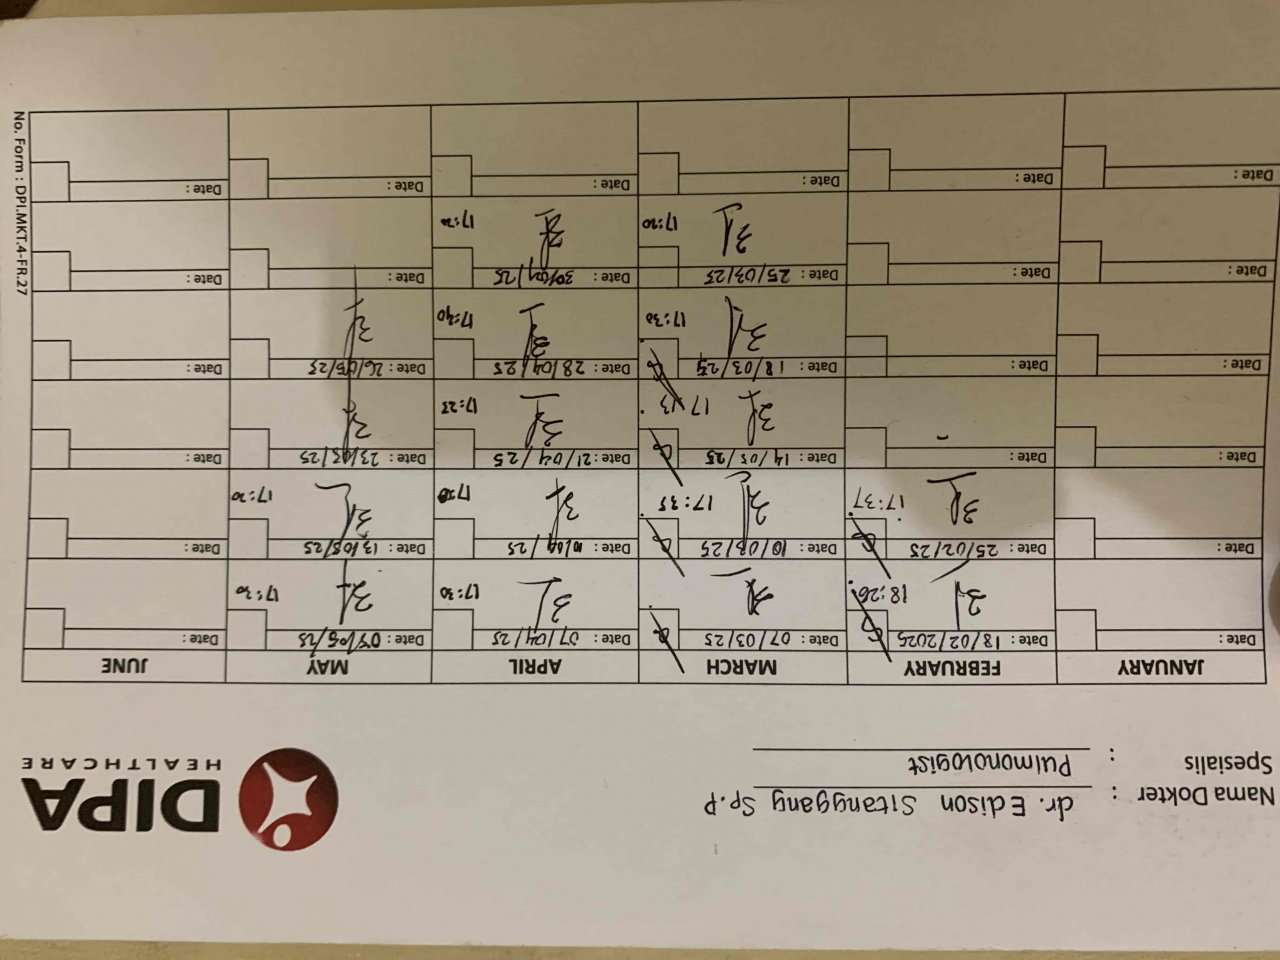 Nama Dokter : dr. Edison Sitanggang Sp.P
Spesialis : Pulmonologist
DIPA
HEALTHCARE
JANUARY FEBRUARY MARCH APRIL MAY JUNE
Date: Date: 18/02/2025 Date: 07/03/25 Date: 07/04/25 Date: Date:
18:26 17:30 17:30
Date: Date: 25/02/25 Date: 10/03/25 Date: 10/04/25 Date: 13/05/25 Date:
17:37 17:35 17:30
Date: Date: Date: 14/03/25 Date: 21/04/25 Date: 23/05/25 Date:
17:13 17:23
Date: Date: Date: 18/03/25 Date: 28/04/25 Date: 26/05/25 Date:
17:30 17:40
Date: Date: Date: 25/03/25 Date: 30/04/25 Date: Date:
17:20 17:20
Date: Date: Date: Date: Date: Date:
No. Form : DPI.MKT.4-FR.27